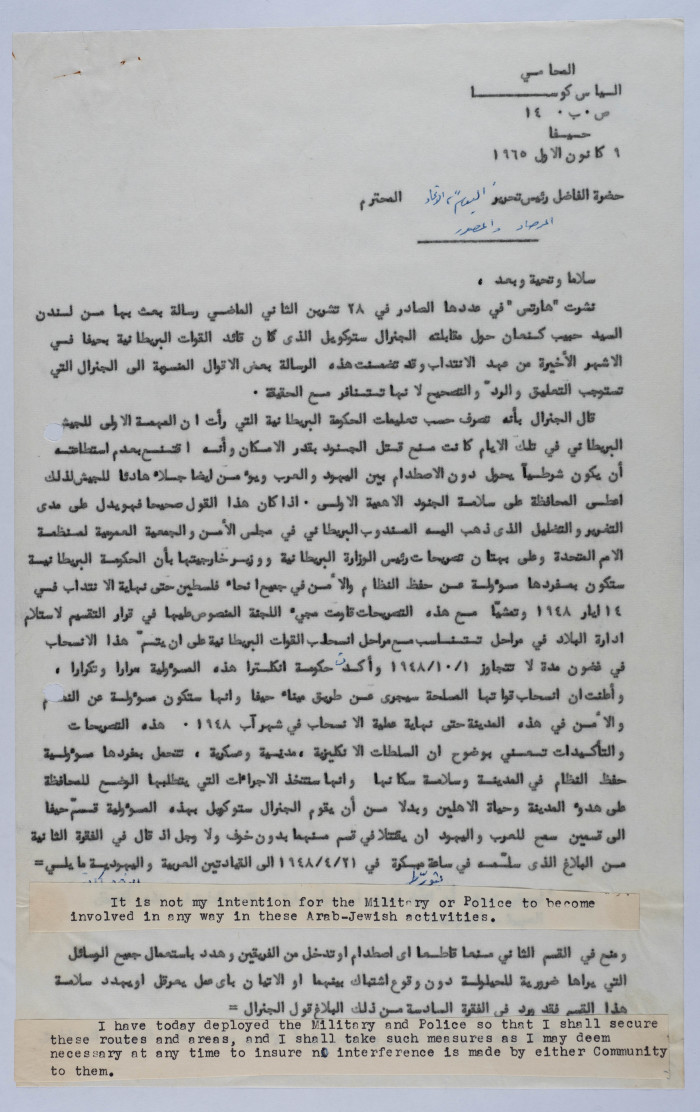 المحامي
الياس كوسا
ص ٠ ب ٠ ١٤
حيفا
٩ كانون الاول ١٩٦٥
حضرة الفاضل رئيس تحرير "اليوم"، الاتحاد المحترم
المرصاد والمصور
سلاما وتحية وبعد ،
نشرت "هارتس" في عددها الصادر في ٢٨ تشرين الثاني الماضي رسالة بعث بها من لندن
السيد حبيب كنعان حول مقابلته الجنرال ستوكويل الذى كان قائد القوات البريطانية بحيفا في
الاشهر الأخيرة من عهد الانتداب وقد تضمنت هذه الرسالة بعض الاقوال المنسوبة الى الجنرال التي
تستوجب التعليق والردّ والتصحيح لانها تستنافر مع الحقيقة ٠
قال الجنرال بأنه تصرف حسب تعليمات الحكومة البريطانية التي رأت ان المهمة الاولى للجيش
البريطاني في تلك الايام كانت منع قتل الجنود بقدر الامكان وأنه اقتنع بعدم استطاعته
أن يكون شرطياً يحول دون الاصطدام بين اليهود والعرب ويؤمن ايضا جلاءً هادئا للجيش لذلك
اعطى المحافظة على سلامة الجنود الاهمية الاولى ٠ اذا كان هذا القول صحيحا فهو يدل على مدى
التغرير والتضليل الذى ذهب اليه المندوب البريطاني في مجلس الأمن والجمعية العمومية لمنظمة
الامم المتحدة وعلى بهتان تصريحات رئيس الوزارة البريطانية ووزير خارجيتها بأن الحكومة البريطانية
ستكون بمفردها مسؤولة عن حفظ النظام والأمن في جميع انحاء فلسطين حتى نهاية الانتداب في
١٤ ايار ١٩٤٨ وتمشيّا مع هذه التصريحات قاومت مجيء اللجنة المنصوص عليها في قرار التقسيم لاستلام
ادارة البلاد في مراحل تستناسب مع مراحل انسحاب القوات البريطانية على ان يتمّ هذا الانسحاب
في غضون مدة لا تتجاوز ١٩٤٨/١٠/١ وأكدت حكومة انكلترا هذه المسؤولية مرارا وتكرارا ،
وأعلنت ان انسحاب قواتها المسلحة سيجرى عن طريق ميناء حيفا وانها ستكون مسؤولة عن النظام
والأمن في هذه المدينة حتى نهاية عملية الانسحاب في شهر آب ١٩٤٨ ٠ هذه التصريحات
والتأكيدات تعني بوضوح ان السلطات الانكليزية ،مدنية وعسكرية ، تتحمل بمفردها مسؤولية
حفظ النظام في المدينة وسلامة سكانها وانها ستتخذ الاجراءات التي يتطلبها الوضع للمحافظة
على هدوء المدينة وحياة الاهلين وبدلا من أن يقوم الجنرال ستوكويل بهذه المسؤولية قسّم حيفا
الى قسمين سمح للعرب واليهود ان يقتتلا في قسم منهما بدون خوف ولا وجل اذ قال في الفقرة الثانية
من البلاغ الذى سلّمه في ساعة مبكرة في ١٩٤٨/٤/٢١ الى القيادتين العربية واليهودية ما يلي=
It is not my intention for the Military or Police to become
involved in any way in these Arab-Jewish activities.
ومنع في القسم الثاني منعا قاطعا اى اصطدام او تدخل من الفريقين وهدد باستعمال جميع الوسائل
التي يراها ضرورية للحيلولة دون وقوع اشتباك بينهما او الاتيان باى عمل يعرقل او يهدد سلامة
هذا القسم فقد ورد في الفقرة السادسة من ذلك البلاغ قول الجنرال =
I have today deployed the Military and Police so that I shall secure
these routes and areas, and I shall take such measures as I may deem
necessary at any time to insure no interference is made by either Community
to them.